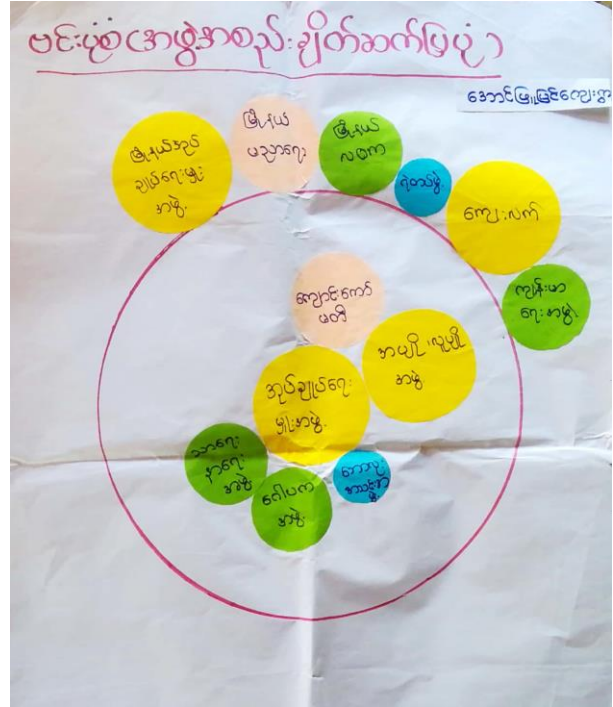 ဗင်းပုံစံ(အဖွဲ့အစည်းချိတ်ဆက်ပြပုံ)
အောင်မြူမြင်ကျေးရွာ
မြို့နယ်အုပ်
ချုပ်ရေးမှူး
အဖွဲ့
မြို့နယ်
ပညာရေး
မြို့နယ်
လဝက
ရဲတပ်ဖွဲ့
ကျေးလက်
ကျန်းမာ
ရေးအဖွဲ့
ကျောင်းကော်
မတီ
အမျိုးသမျို
အဖွဲ့
အုပ်ချုပ်ရေး
မှူးအဖွဲ့
သာရေး
နာရေး
အဖွဲ့
ဂေါပက
အဖွဲ့